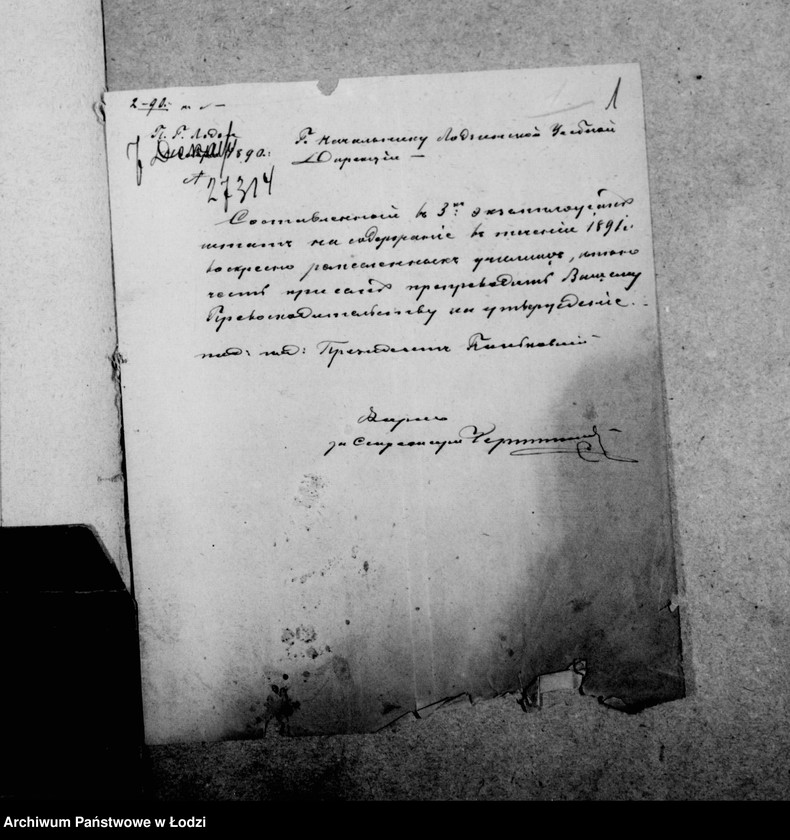 2-90.
1
П. Г. Лодзь
7 Декабр 1890.
Г. Начальнику Лодзинской Учебной
Дирекции —
№
27314
Составленный в 3хъ экземплярахъ
штатъ на содержаніе въ теченіи 1891 г.
воскресно ремесленныхъ училищъ, имѣю
честь при семъ препроводить Вашему
Превосходительству на утвержденіе.
под: под: Президентъ Пеньковскій
Вѣрно
за Секретаря
Archiwum Państwowe w Łodzi